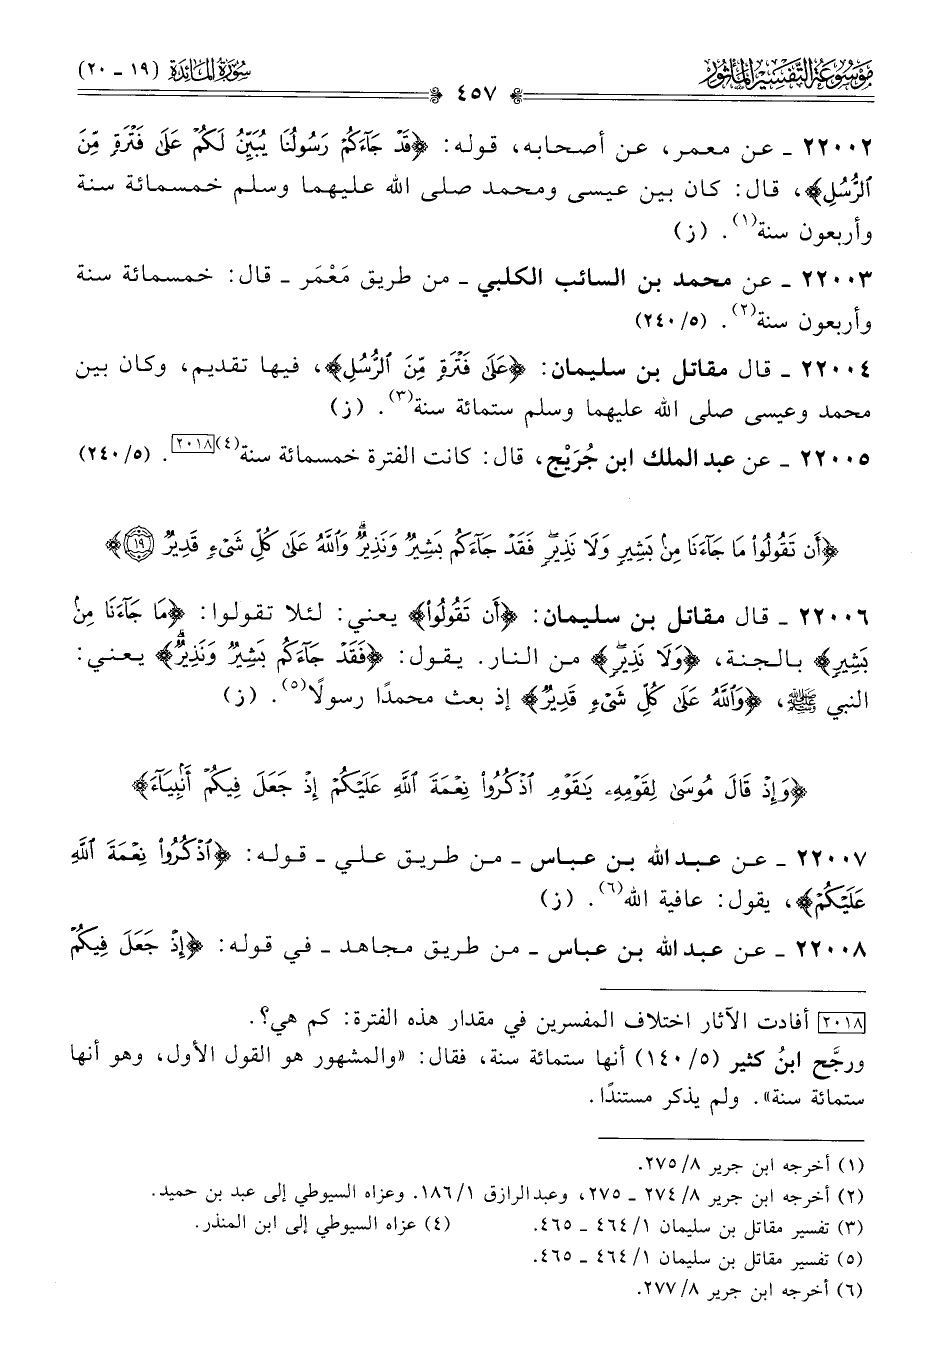 مَوْسُوعَة التَّفْسِير المَأْثُور
٤٥٧
سُورَةُ المَائِدَة (١٩ - ٢٠)
٢٢٠٠٢ - عن معمر، عن أصحابه، قوله: ﴿قَدْ جَآءَكُمْ رَسُولُنَا يُبَيِّنُ لَكُمْ عَلَىٰ فَتْرَةٍ مِّنَ
ٱلرُّسُلِ﴾، قال: كان بين عيسى ومحمد صلى الله عليهما وسلم خمسمائة سنة
وأربعون سنة(١). (ز)
٢٢٠٠٣ - عن محمد بن السائب الكلبي - من طريق مَعْمَر - قال: خمسمائة سنة
وأربعون سنة(٢). (٥/ ٢٤٠)
٢٢٠٠٤ - قال مقاتل بن سليمان: ﴿عَلَىٰ فَتْرَةٍ مِّنَ ٱلرُّسُلِ﴾، فيها تقديم، وكان بين
محمد وعيسى صلى الله عليهما وسلم ستمائة سنة(٣). (ز)
٢٢٠٠٥ - عن عبد الملك ابن جُرَيْج، قال: كانت الفترة خمسمائة سنة(٤)[٢٠١٨]. (٥/ ٢٤٠)
﴿أَن تَقُولُوا۟ مَا جَآءَنَا مِنۢ بَشِيرٍ وَلَا نَذِيرٍۖ فَقَدْ جَآءَكُم بَشِيرٌ وَنَذِيرٌۗ وَٱللَّهُ عَلَىٰ كُلِّ شَىْءٍ قَدِيرٌ ١٩﴾
٢٢٠٠٦ - قال مقاتل بن سليمان: ﴿أَن تَقُولُوا۟﴾ يعني: لئلا تقولوا: ﴿مَا جَآءَنَا مِنۢ
بَشِيرٍ﴾ بالجنة، ﴿وَلَا نَذِيرٍۖ﴾ من النار. يقول: ﴿فَقَدْ جَآءَكُم بَشِيرٌ وَنَذِيرٌۗ﴾ يعني:
النبي ﷺ، ﴿وَٱللَّهُ عَلَىٰ كُلِّ شَىْءٍ قَدِيرٌ﴾ إذ بعث محمدًا رسولًا(٥). (ز)
﴿وَإِذْ قَالَ مُوسَىٰ لِقَوْمِهِۦ يَـٰقَوْمِ ٱذْكُرُوا۟ نِعْمَةَ ٱللَّهِ عَلَيْكُمْ إِذْ جَعَلَ فِيكُمْ أَنۢبِيَآءَ﴾
٢٢٠٠٧ - عن عبد الله بن عباس - من طريق علي - قوله: ﴿ٱذْكُرُوا۟ نِعْمَةَ ٱللَّهِ
عَلَيْكُمْ﴾، يقول: عافية الله(٦). (ز)
٢٢٠٠٨ - عن عبد الله بن عباس - من طريق مجاهد - في قوله: ﴿إِذْ جَعَلَ فِيكُمْ
[٢٠١٨] أفادت الآثار اختلاف المفسرين في مقدار هذه الفترة: كم هي؟.
ورجَّح ابنُ كثير (٥/ ١٤٠) أنها ستمائة سنة، فقال: «والمشهور هو القول الأول، وهو أنها
ستمائة سنة». ولم يذكر مستندًا.
(١) أخرجه ابن جرير ٨/ ٢٧٥.
(٢) أخرجه ابن جرير ٨/ ٢٧٤ - ٢٧٥، وعبدالرازق ١/ ١٨٦. وعزاه السيوطي إلى عبد بن حميد.
(٣) تفسير مقاتل بن سليمان ١/ ٤٦٤ - ٤٦٥. (٤) عزاه السيوطي إلى ابن المنذر.
(٥) تفسير مقاتل بن سليمان ١/ ٤٦٤ - ٤٦٥.
(٦) أخرجه ابن جرير ٨/ ٢٧٧.